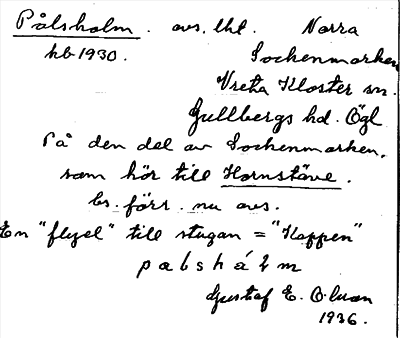 Pålsholm. avs. lht. Norra
hb 1930. Sockenmarken
Vreta Kloster sn.
Gullbergs hd. Ögl
På den del av Sockenmarken,
som hör till Hornstäve.
bs. förr. nu avs.
En "flygel" till stugan = "Kappen"
Gustaf E.
1936.